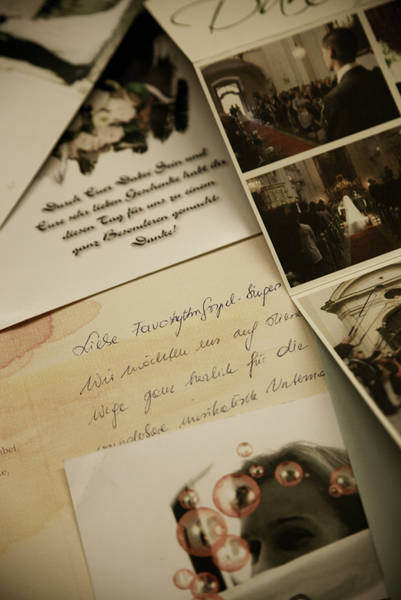 Durch Euer Dabei Sein und
Eure sehr lieben Geschenke habt ihr
diesen Tag für uns zu einem
ganz Besonderen gemacht.
Danke!
Liebe
Wir möchten uns auf
Wege ganz herzlich für die
musikalische